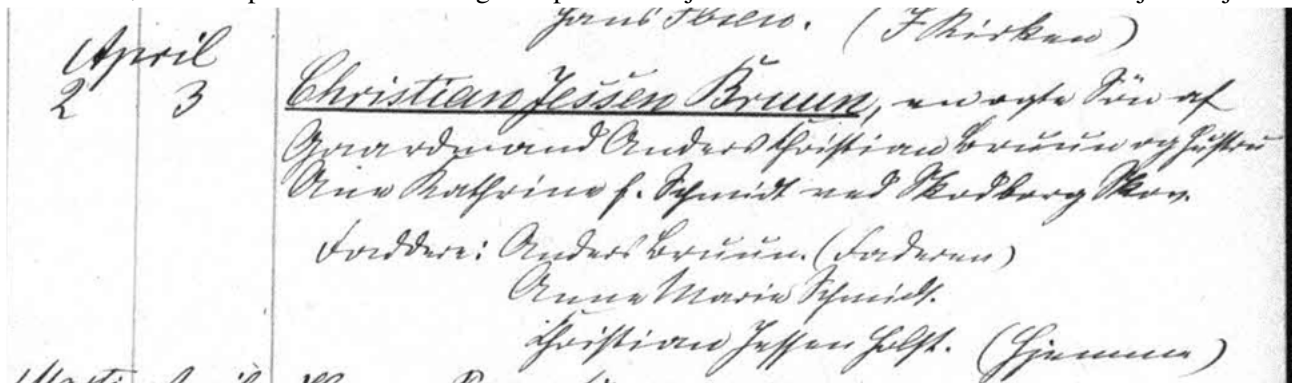 Hans Ibsen. (I Kirken)
April
2 3 Christian Jessen Bruun, en ægte Søn af
Gaardmand Anders Christian Bruun og Hustru
Ane Kathrine f. Schmidt ved Skodborg Skov.
Faddere: Anders Bruun. (Faderen)
Anne Marie Schmidt.
Christian Jessen Holst. (Hjemme)